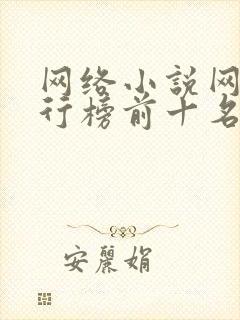 网络小説网
行榜前十名
安麗娟